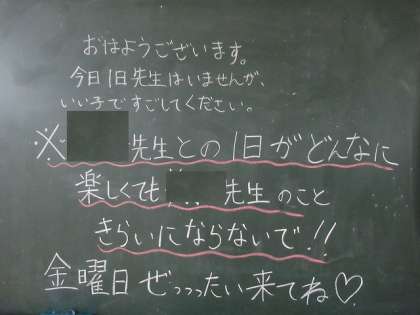 おはようございます。
今日1日先生はいませんが、
いい子ですごしてください。
※ 先生との1日がどんなに
楽しくても 先生のこと
きらいにならないで!!
金曜日ぜっっったい来てね♡